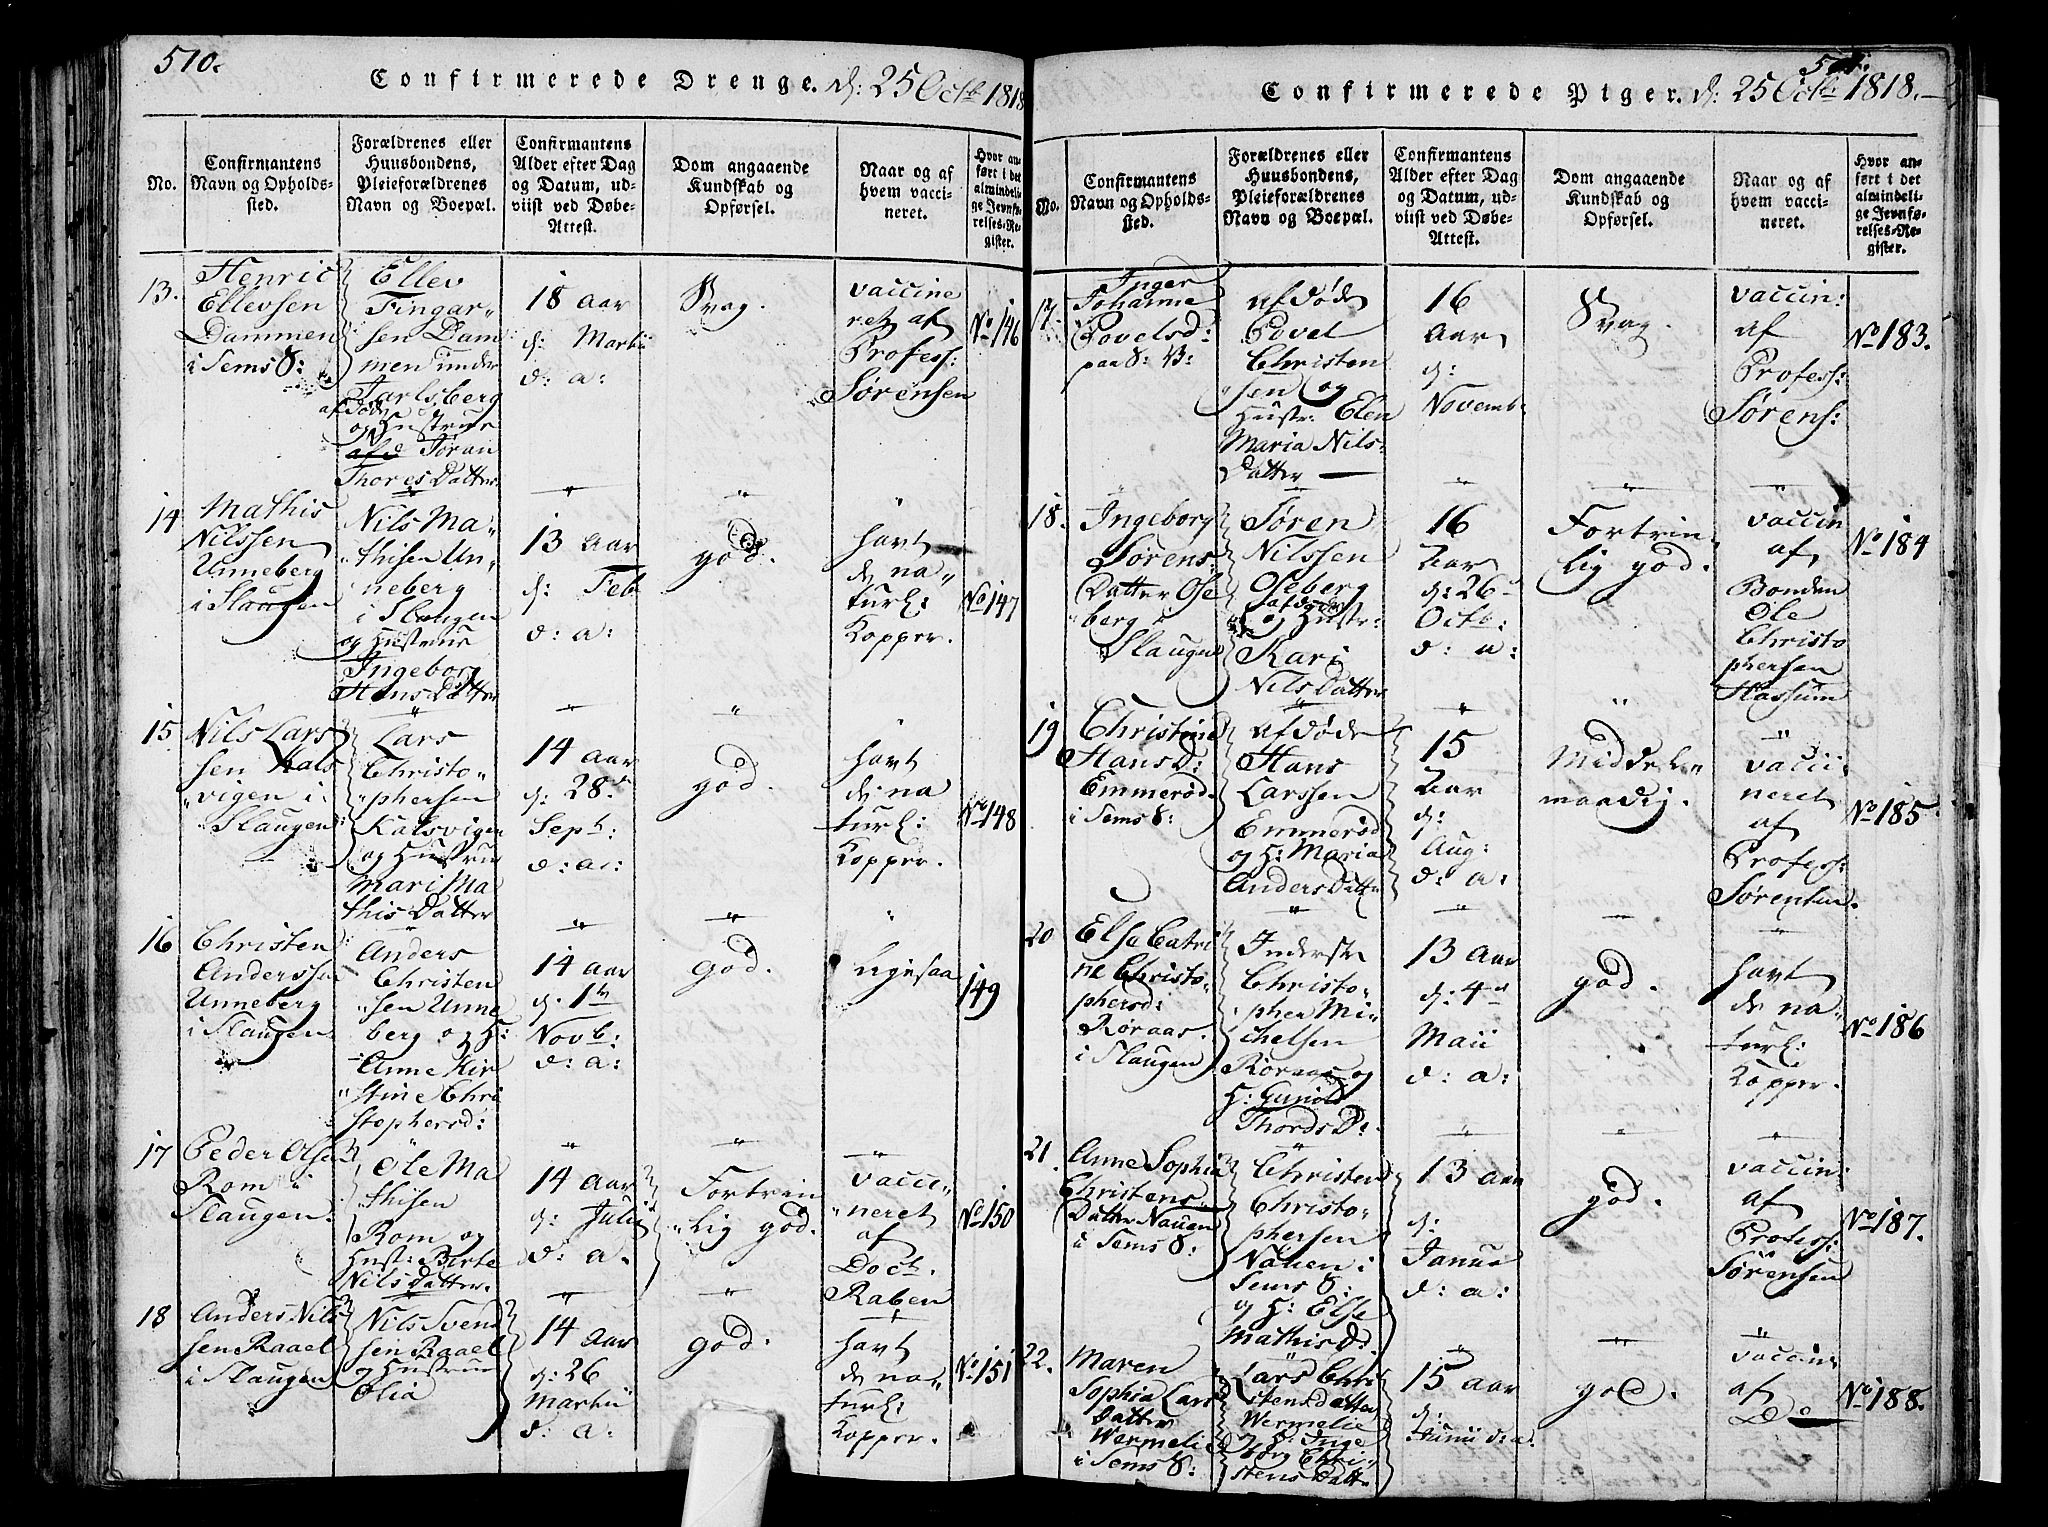 510.
Confirmerede Drenge. d: 25 Octb 1818
No.
Confirmantens
Navn og Opholds-
sted.
Forældrenes eller
Huusbondens,
Pleieforældrenes
Navn og Boepæl.
Confirmantens
Alder efter Dag
og Datum, ud-
viist ved Døbe-
Attest.
Dom angaaende
Kundskab og
Opførsel.
Naar og af
hvem vacci-
neret.
Hvor an-
ført i det
almindeli-
ge Jevnfø-
relses-Re-
gister.
13.
Henric
Ellevsen
Dammen
i Sems S:
Ellev
Fingar-
sen Dam
men under
Jarlsberg
afdøde
og Hustrue
Joran
Thores Datter
18 aar
d: Martii
d: a:
Svag.
vaccine
ret af
Profess:
Sørensen
No 146
14
Mathis
Nilssen
Unneberg
i Slaugen
Nils Ma-
thisen Un-
neberg
i Slaugen
og Hustrue
Ingeborg
Hans Datter
13 aar
d: Feb
d: a:
god
havt
de na-
turl:
Kopper.
No 147
15
Nils Lars
sen Kals
vigen i
Slaugen
Lars
Christo-
phersen
Kalsvigen
og Hustrue
Mari Ma
this Datter
14 aar
d: 28
Septb:
d: a:
god.
havt
de na
turl:
Kopper.
No 148
16
Christen
Anderssen
Unneberg
i Slaugen
Anders
Christen
sen Unne
berg og H:
Anne Kir
stine Chri
stophersd:
14 aar
d. 1te
Novb:
d: a:
god.
Ligesaa
149
17
Peder Olsen
Rom i
Slaugen.
Ole Ma
thisen
Rom og
Hust: Birte
Nils Datter.
14 aar
d: Julii
d: a.
Fortrin
lig god.
vacci-
neret
af
Doct.
Raben
No 150
18
Anders Nils
sen Raael
i Slaugen
Nils Svend
sen Raael
og Hustrue
Olia
14 aar
d: 26
Martii
d: a:
god.
havt
de na-
turl:
Kopper.
No 151
511.
Confirmerede Piger. d: 25 Octb 1818.
No.
Confirmantens
Navn og Opholds-
sted.
Forældrenes eller
Huusbondens,
Pleieforældrenes
Navn og Boepæl.
Confirmantens
Alder efter Dag
og Datum, ud-
viist ved Døbe-
Attest.
Dom angaaende
Kundskab og
Opførsel.
Naar og af
hvem vacci-
neret.
Hvor an-
ført i det
almindeli-
ge Jevnfø-
relses-Re-
gister.
17.
Inger
Johanne
Povelsd:
paa S: B:
afdøde
Povel
Christen
sen og
Hustr: Elen
Maria Nils-
Datter
16
Aar
d:
Novemb:
Svag.
vaccin:
af
Profess:
Sørens:
No 183.
18.
Ingeborg
Sørens
Datter Ose
berg i
Slaugen
Søren
Nilssen
Oseberg
afdøde
og Hustr:
Kari
Nils Datter
16
Aar
d: 26
Octb:
d: a:
Fortrin-
lig god.
vaccin
af
Bonden
Ole
Christo
phersen
Hassum
No 184
19
Christine
Hans D:
Emmerød
i Sems S:
afdøde
Hans
Larssen
Emmerød
og H: Maria
Anders Datter
15
Aar
d:
Aug:
d: a:
Middel-
maadig.
vacci-
neret
af
Profess:
Sørensen.
No 185
20
Else Catri
ne Christo-
phersd:
Røraas.
i Slaugen
Inderste
Christo-
pher Mi-
chelsen
Røraas og
H: Gunild
Thords D:
13 aar
d: 4de
Maii
d: a:
god.
havt
de na-
turl:
Kopper.
No 186
21
Anne Sophia
Christens
Datter Nauen
i Sems S:
Christen
Christo-
phersen
Nauen i
Sems S:
og H: Else
Mathis D.
13 aar
d:
Janua
d: a:
god.
vaccin:
af
Profess:
Sørensen
No 187.
22.
Maren
Sophia Lars
Datter
Wermelie
i Sems S:
Lars Chri
stensdatter
Wermelie
og H: Inge
borg Chri
stens Datter
15 aar
d:
Junii d: a:
god.
vaccin
af
De
No 188.